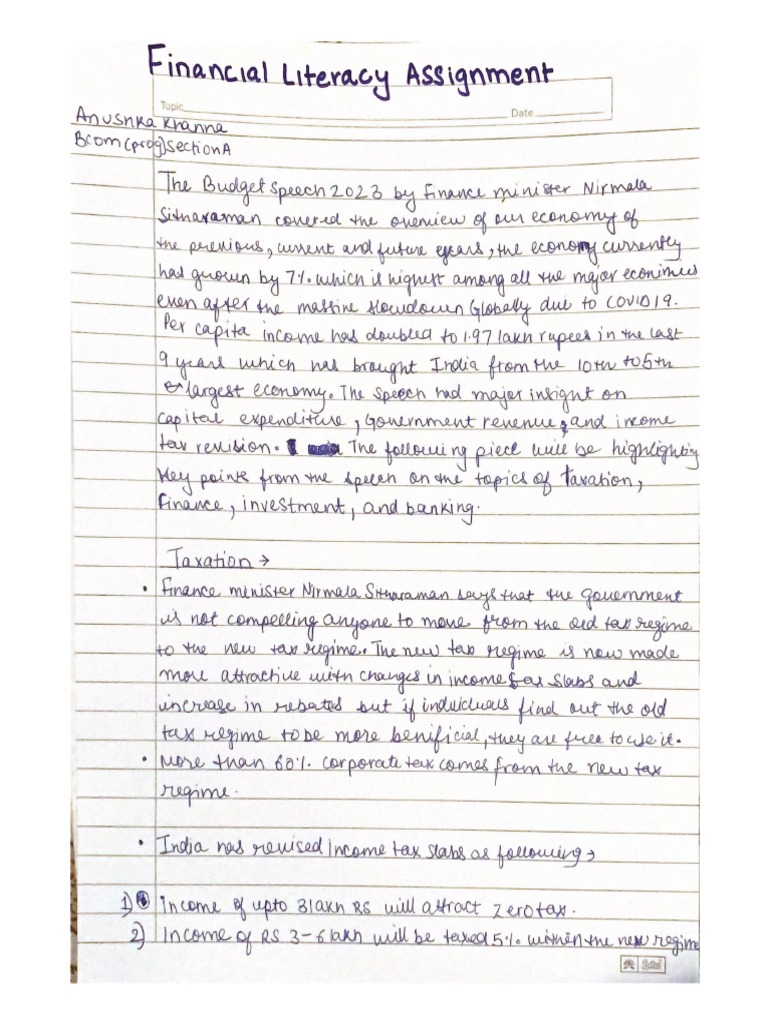 Financial Literacy Assignment
Topic Date
Anushka Khanna
Bcom(prog)Section A
The Budget Speech 2023 by Finance minister Nirmala
Sitharaman covered the overview of our economy of
the previous, current and future years, the economy currently
has grown by 7% which is highest among all the major economies
even after the massive slowdown Globally due to COVID19.
Per capita income has doubled to 1.97 lakh rupees in the last
9 years which has brought India from the 10th to 5th
largest economy. The speech had major insight on
capital expenditure, Government revenue, and income
tax revision. The following piece will be highlighting
key points from the speech on the topics of Taxation,
Finance, investment, and banking.
Taxation →
• Finance minister Nirmala Sitharaman says that the government
is not compelling anyone to move from the old tax regime
to the new tax regime. The new tax regime is now made
more attractive with changes in income tax slabs and
increase in rebates but if individuals find out the old
tax regime to be more benificial, they are free to use it.
• More than 60% corporate tax comes from the new tax
regime.
• India has revised income tax slabs as following →
1) Income of upto 3lakh RS will attract Zero tax.
2) Income of RS 3-6 lakh will be taxed 5% within the new regime